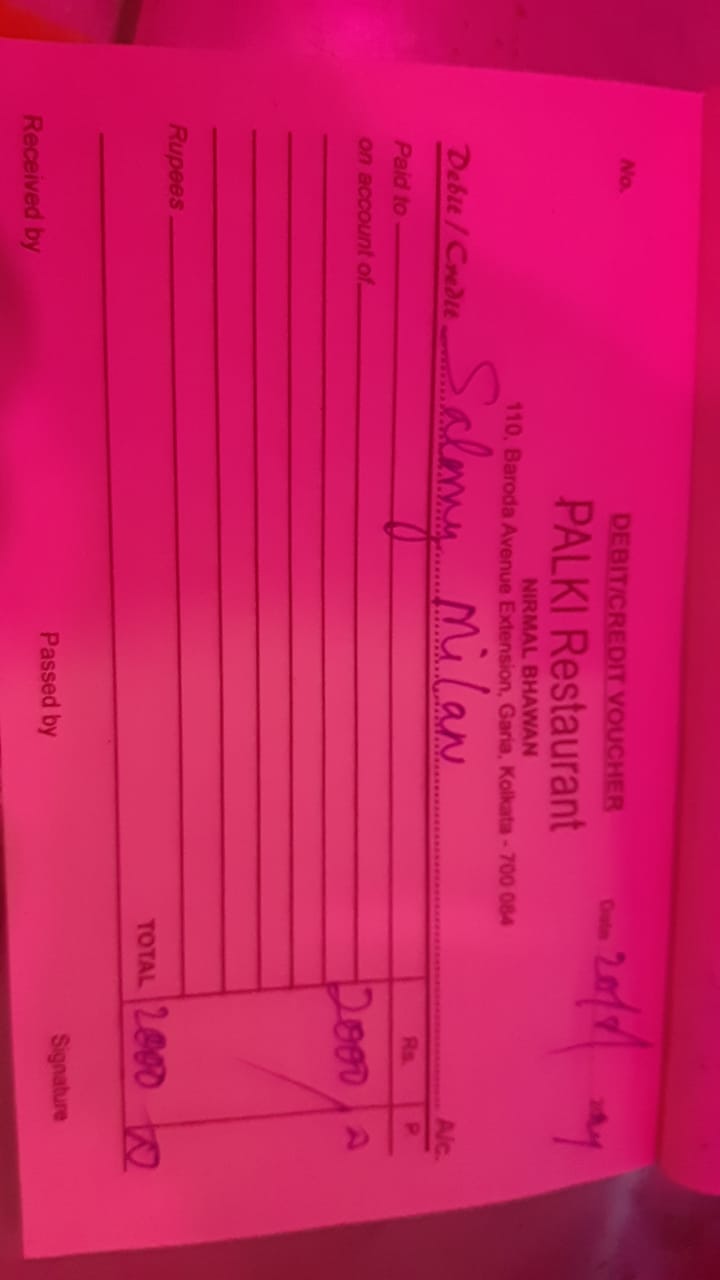 DEBIT/CREDIT VOUCHER
No. Date
PALKI Restaurant
NIRMAL BHAWAN
110, Baroda Avenue Extension, Garia, Kolkata - 700 084
Debit / Credit Milan A/c.
Paid to Rs. P.
on account of 2000
Rupees
TOTAL 2000
Received by Passed by Signature